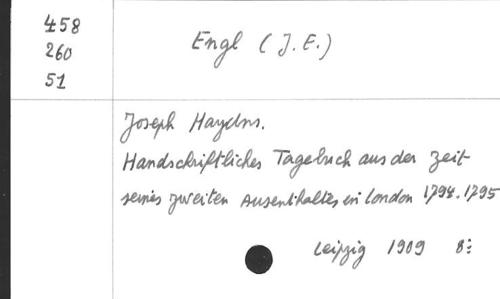 458
260
51
Engl (J. E.)
Joseph Haydns.
Handschriftliches Tagebuch aus der Zeit
seines zweiten Ausenthaltes in London 1794.1795
Leipzig 1909 8: